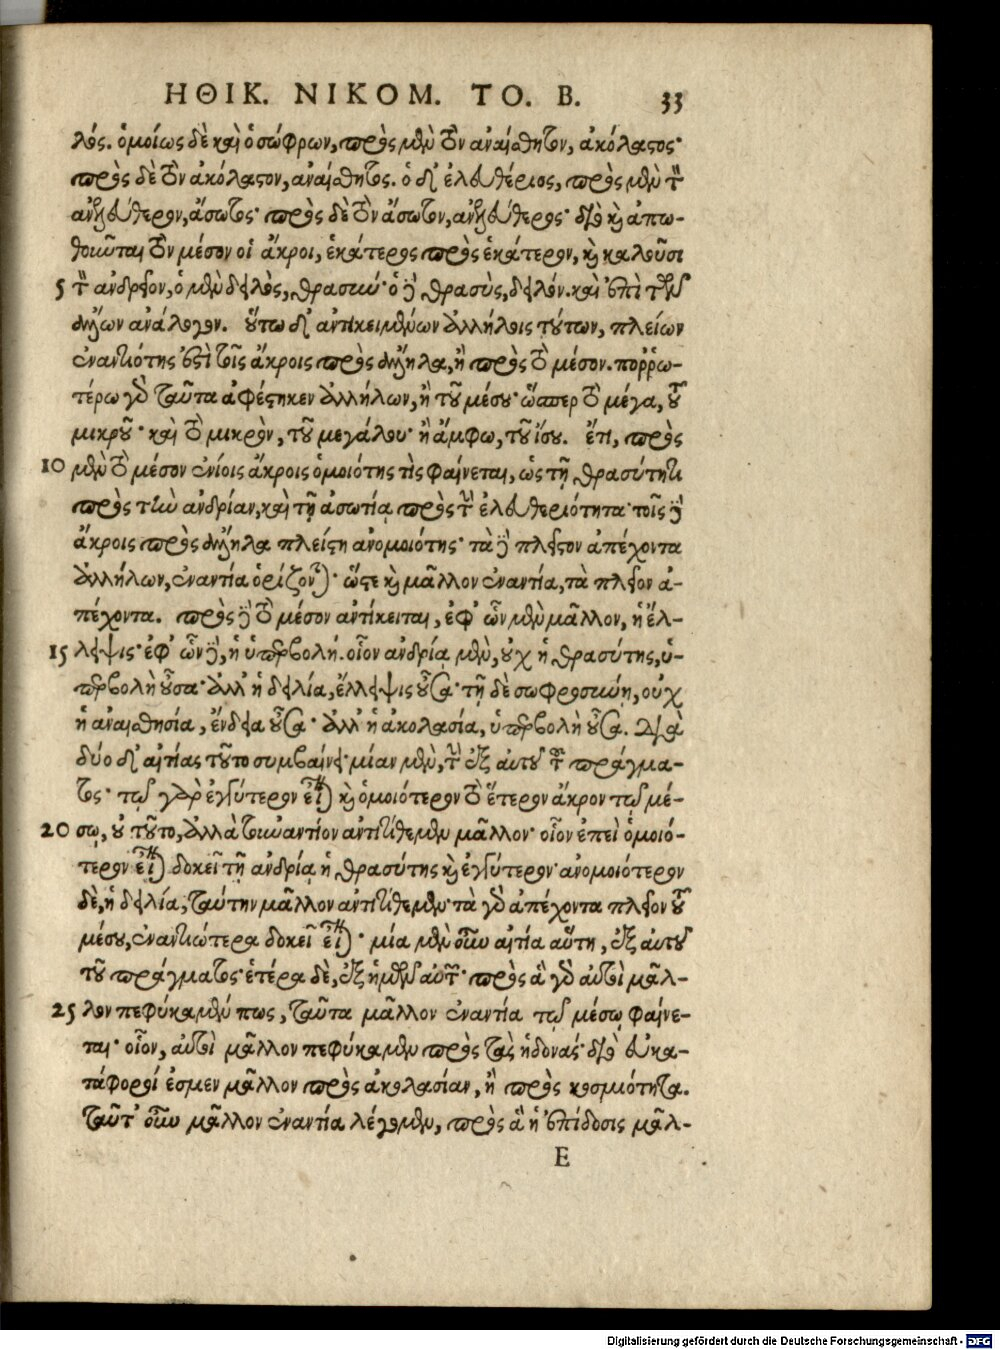 ΗΘΙΚ. ΝΙΚΟΜ. ΤΟ. Β. 33
λός. ὁμοίως δὲ καὶ ὁ σώφρων, πρὸς μὲν τὸν ἀναίσθητον, ἀκόλαστος·
πρὸς δὲ τὸν ἀκόλαστον, ἀναίσθητος. ὁ δ' ἐλευθέριος, πρὸς μὲν τὸν
ἀνελεύθερον, ἄσωτος· πρὸς δὲ τὸν ἄσωτον, ἀνελεύθερος· διὸ καὶ ἀπω-
θοῦνται τὸν μέσον οἱ ἄκροι, ἑκάτερος πρὸς ἑκάτερον, καὶ καλοῦσι
5 τὸν ἀνδρεῖον, ὁ μὲν δειλὸς, θρασὺν· ὁ δὲ θρασὺς, δειλόν. καὶ ἐπὶ τῶν
ἄλλων ἀνάλογον. οὕτω δ' ἀντικειμένων ἀλλήλοις τούτων, πλείων
ἐναντιότης ἐστὶ τοῖς ἄκροις πρὸς ἄλληλα, ἢ πρὸς τὸ μέσον. πορρω-
τέρω γὰρ ταῦτα ἀφέστηκεν ἀλλήλων, ἢ τοῦ μέσου· ὥσπερ τὸ μέγα, τοῦ
μικροῦ· καὶ τὸ μικρὸν, τοῦ μεγάλου· ἢ ἄμφω, τοῦ ἴσου. ἔτι, πρὸς
10 μὲν τὸ μέσον ἐνίοις ἄκροις ὁμοιότης τὶς φαίνεται, ὡς τῇ θρασύτητι
πρὸς τὴν ἀνδρίαν, καὶ τῇ ἀσωτίᾳ πρὸς τὴν ἐλευθεριότητα· τοῖς δὲ
ἄκροις πρὸς ἄλληλα πλείστη ἀνομοιότης· τὰ δὲ πλεῖστον ἀπέχοντα
ἀλλήλων, ἐναντία ὁρίζονται· ὥστε καὶ μᾶλλον ἐναντία, τὰ πλεῖον ἀ-
πέχοντα. πρὸς δὲ τὸ μέσον ἀντίκειται, ἐφ' ὧν μὲν μᾶλλον, ἡ ἔλ-
15 λειψις· ἐφ' ὧν δὲ, ἡ ὑπερβολή. οἷον ἀνδρίᾳ μὲν, οὐχ ἡ θρασύτης, ὑ-
περβολὴ οὖσα· ἀλλ' ἡ δειλία, ἔλλειψις οὖσα· τῇ δὲ σωφροσύνῃ, οὐχ
ἡ ἀναισθησία, ἔνδεια οὖσα· ἀλλ' ἡ ἀκολασία, ὑπερβολὴ οὖσα. Διὰ
δύο δ' αἰτίας τοῦτο συμβαίνει· μίαν μὲν, τὴν ἐξ αὐτοῦ τοῦ πράγμα-
τος· τῷ γὰρ ἐγγύτερον εἶναι καὶ ὁμοιότερον τὸ ἕτερον ἄκρον τῷ μέ-
20 σῳ, οὐ τοῦτο, ἀλλὰ τοὐναντίον ἀντιτίθεμεν μᾶλλον· οἷον ἐπεὶ ὁμοιό-
τερον εἶναι δοκεῖ τῇ ἀνδρίᾳ ἡ θρασύτης καὶ ἐγγύτερον· ἀνομοιότερον
δὲ, ἡ δειλία, ταύτην μᾶλλον ἀντιτίθεμεν· τὰ γὰρ ἀπέχοντα πλεῖον τοῦ
μέσου, ἐναντιώτερα δοκεῖ εἶναι. μία μὲν οὖν αἰτία αὕτη, ἐξ αὐτοῦ
τοῦ πράγματος· ἑτέρα δὲ, ἐξ ἡμῶν αὐτῶν· πρὸς ἃ γὰρ αὐτοὶ μᾶλ-
25 λον πεφύκαμέν πως, ταῦτα μᾶλλον ἐναντία τῷ μέσῳ φαίνε-
ται· οἷον, αὐτοὶ μᾶλλον πεφύκαμεν πρὸς τὰς ἡδονάς· διὸ εὐκα-
τάφοροί ἐσμεν μᾶλλον πρὸς ἀκολασίαν, ἢ πρὸς κοσμιότητα.
ταῦτ' οὖν μᾶλλον ἐναντία λέγομεν, πρὸς ἃ ἡ ἐπίδοσις μᾶλ-
E
Digitalisierung gefördert durch die Deutsche Forschungsgemeinschaft - DFG